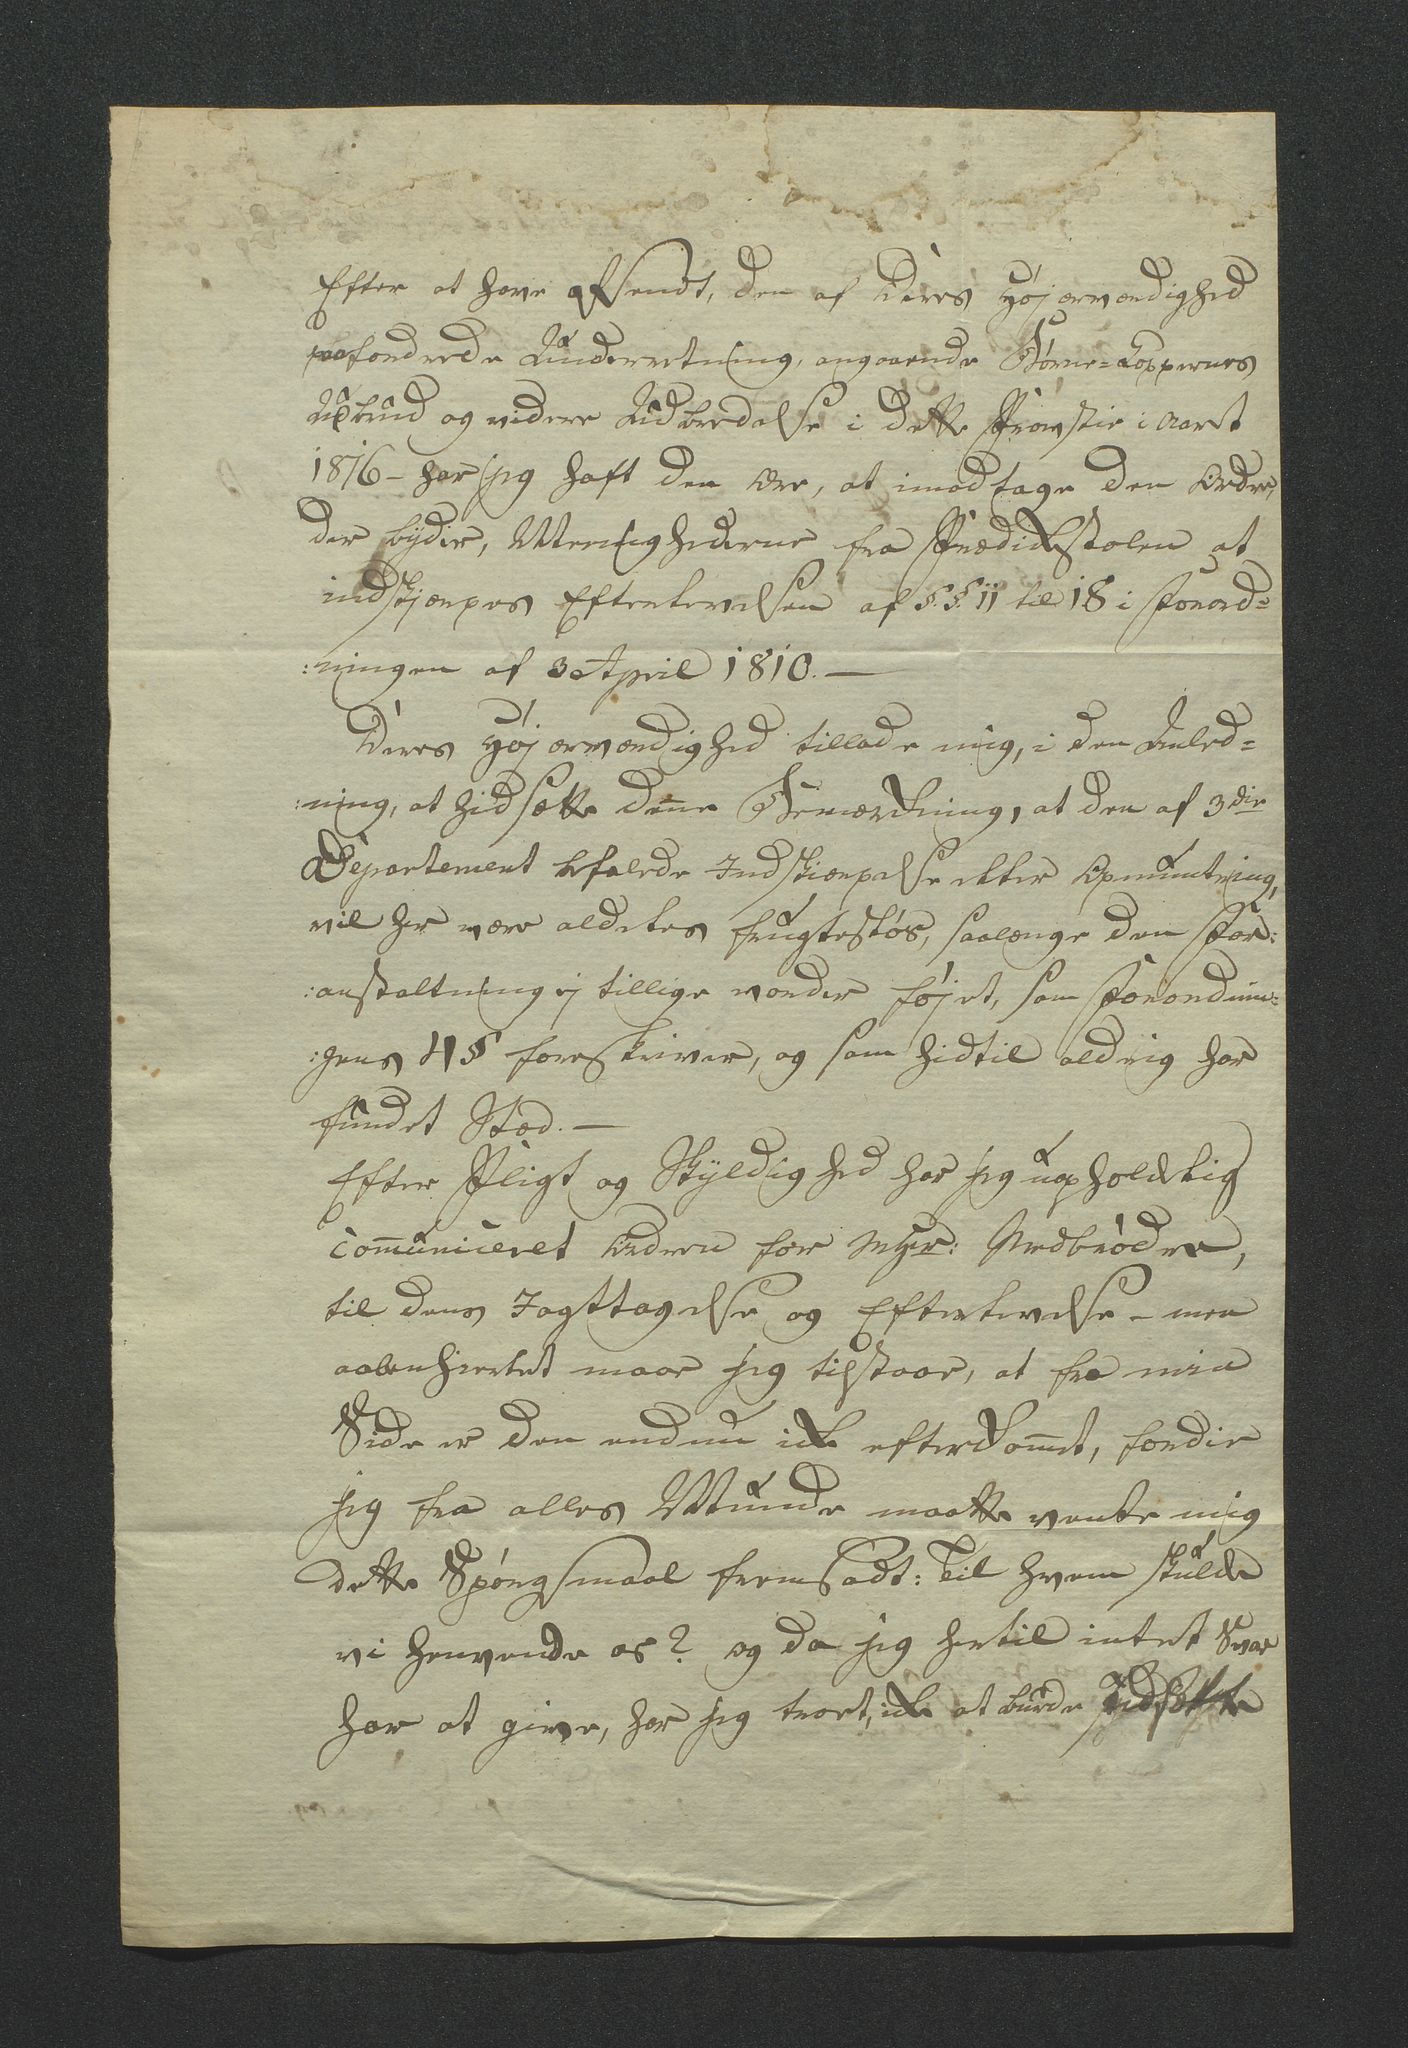 Efter at have afsendt, den af Deres Højærværdighed
paafordrede Underretning, angaaende Børne-Koppernes
Udbrud og videre Udbredelse i dette Provstie i Aaret
1816 - har jeg haft den Ære, at imodtage den Ordre,
der byder, Menighederne fra Prædikestolen at
indskjærpes Efterlevelsen af §.§. 11 til 18 i Forord=
:ningen af 3 April 1810. —
Deres Højærværdighed tillade mig, i den Anled=
:ning, at hidsætte denne Bemærkning, at den af 3die
Departement befalede Indskiærpelse eller Opmuntring,
vil her være aldeles frugtesløs, saalænge den For:
:anstaltning ej tillige vorder føjet, som Forordnin=
:gens 4 § foreskriver, og som hidtil aldrig har
fundet Stæd. —
Efter Pligt og Skyldighed har jeg uopholdelig
communiceret Ordren for mHr: Medbrødre,
til dens Iagttagelse og Efterlevelse - men
aabenhiertet maae jeg tilstaae, at fra min
Side er den endnu ikke efterkommet, fordie
jeg fra alles Munde maatte vente mig
dette Spørgsmaal fremsadt: Til hvem skulde
vi henvende os? og da jeg hertil intet Svar
har at give, har jeg troet, ikke at burde